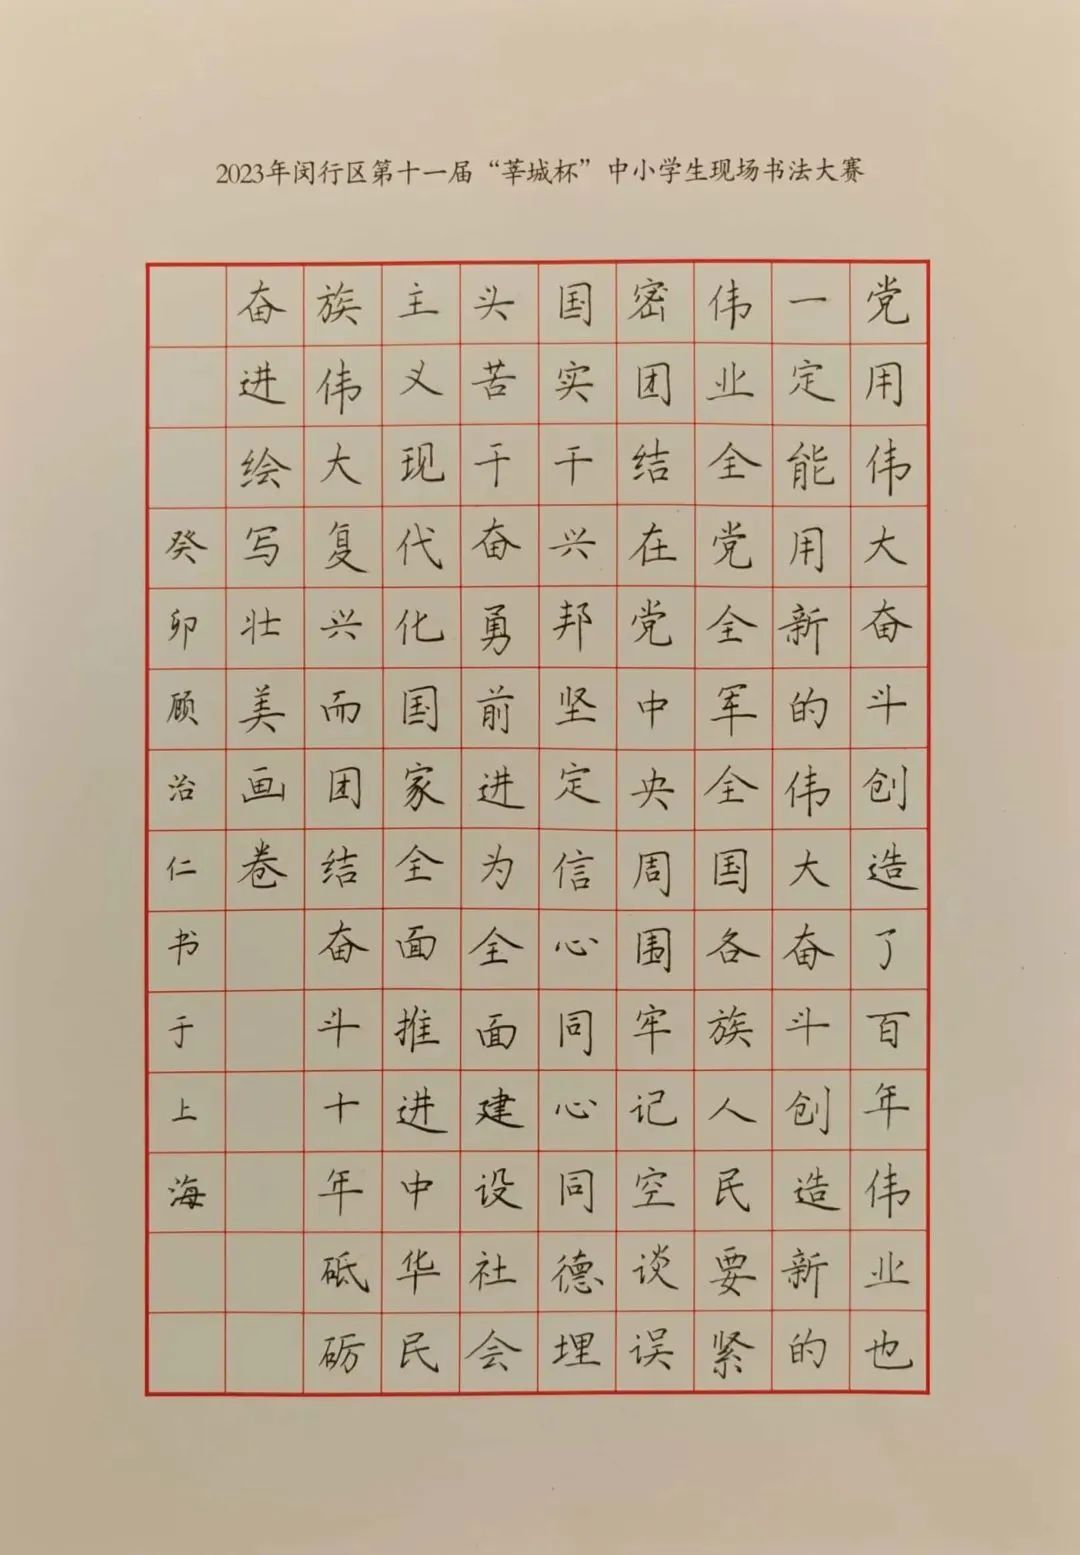 2023年闵行区第十一届“莘城杯”中小学生现场书法大赛
党用伟大奋斗创造了百年伟业也
一定能用新的伟大奋斗创造新的
伟业全党全军全国各族人民要紧
密团结在党中央周围牢记空谈误
国实干兴邦坚定信心同心同德埋
头苦干奋勇前进为全面建设社会
主义现代化国家全面推进中华民
族伟大复兴而团结奋斗十年砥砺
奋进绘写壮美画卷
癸卯顾治仁书于上海